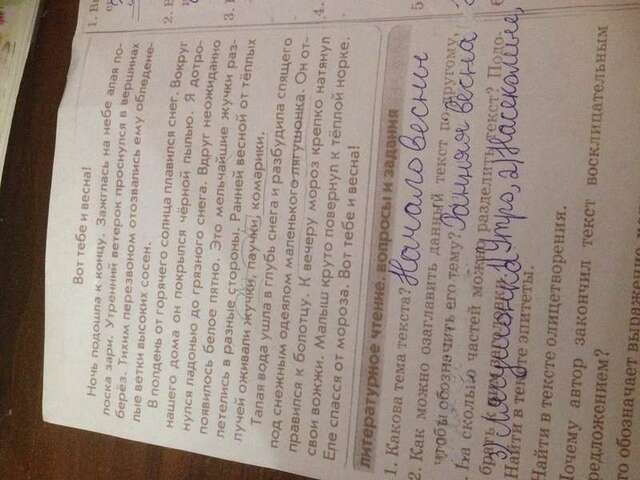 Вот тебе и весна!
Ночь подошла к концу. Зажглась на небе алая по-
лоска зари. Утренний ветерок проснулся в вершинах
берёз. Тихим перезвоном отозвались ему обледене-
лые ветки высоких сосен.
В полдень от горячего солнца плавился снег. Вокруг
нашего дома он покрылся чёрной пылью. Я дотро-
нулся ладонью до грязного снега. Вдруг неожиданно
появилось белое пятно. Это мельчайшие жучки раз-
летелись в разные стороны. Ранней весной от тёплых
лучей оживали жучки, паучки, комарики.
Талая вода ушла в глубь снега и разбудила спящего
под снежным одеялом маленького лягушонка. Он от-
правился к болотцу. К вечеру мороз крепко натянул
свои вожжи. Малыш круто повернул к тёплой норке.
Еле спасся от мороза. Вот тебе и весна!
литературное чтение. вопросы и задания
1. Какова тема текста? Начало весны
2. Как можно озаглавить данный текст по-другому,
чтобы обозначить его тему? Ранняя весна
. На сколько частей можно разделить текст? Подо-
брать к ним заголовки. 1) Утро, 2) Насекомые,
3) Лягушонка
Найти в тексте эпитеты.
Найти в тексте олицетворения.
Почему автор закончил текст восклицательным
редложением?
то обозначает выражение
1. В
2.
3.
4.
5
6